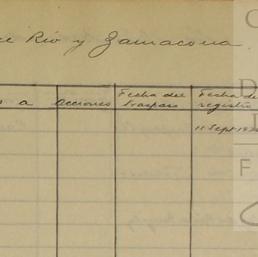 Rio y Zamacona
a acciones Fecha del traspaso Fecha de registro
11 Sept